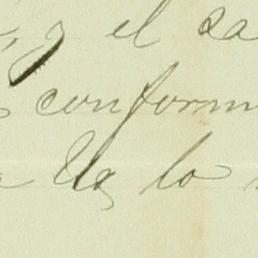 y el sa
conform
lo